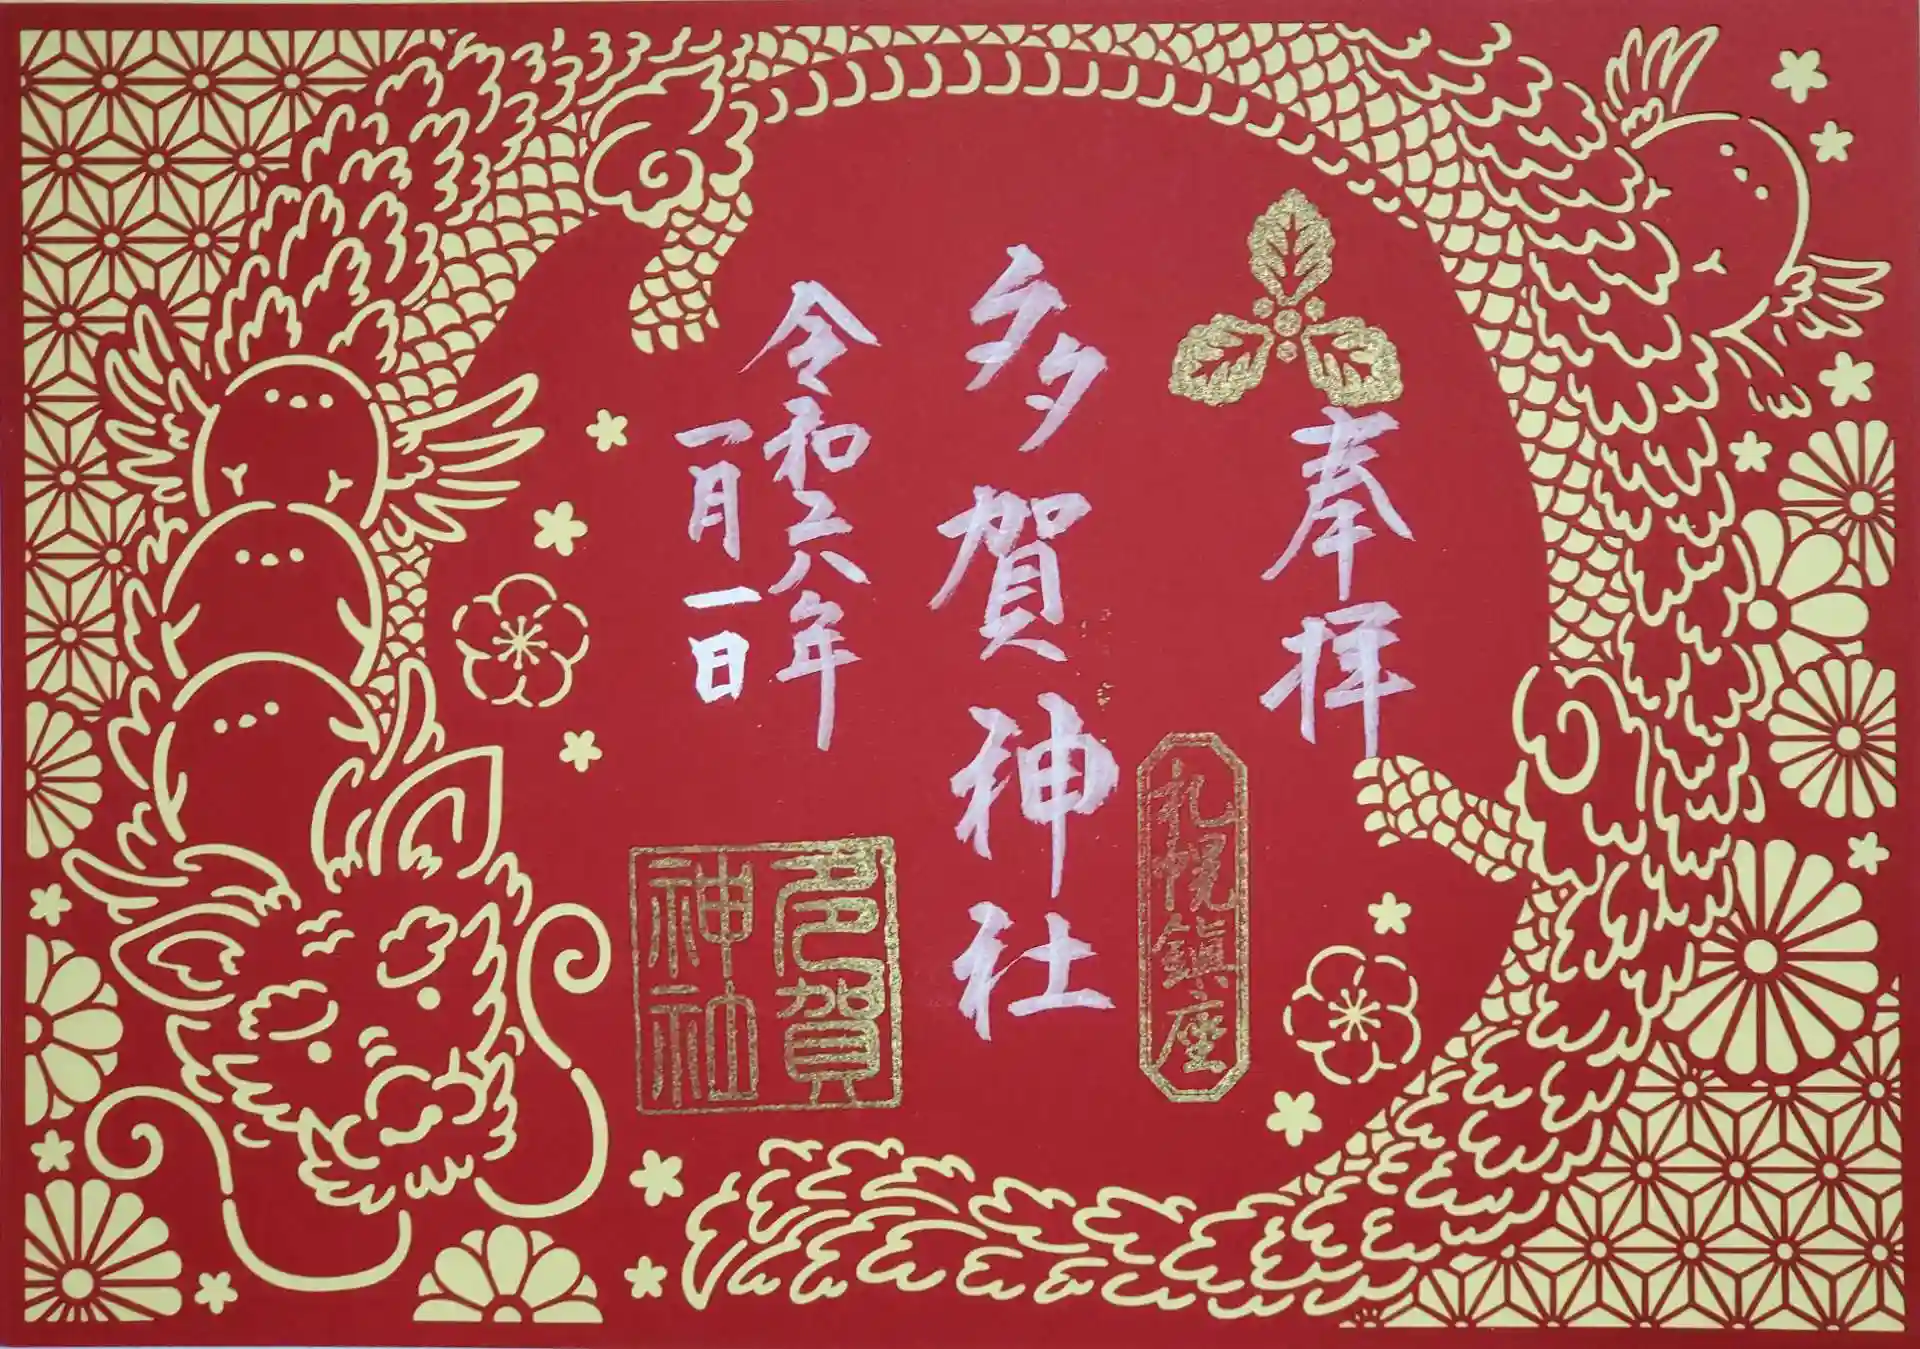 奉拝
札幌鎮座
多賀神社
多賀
神社
令和六年
一月一日